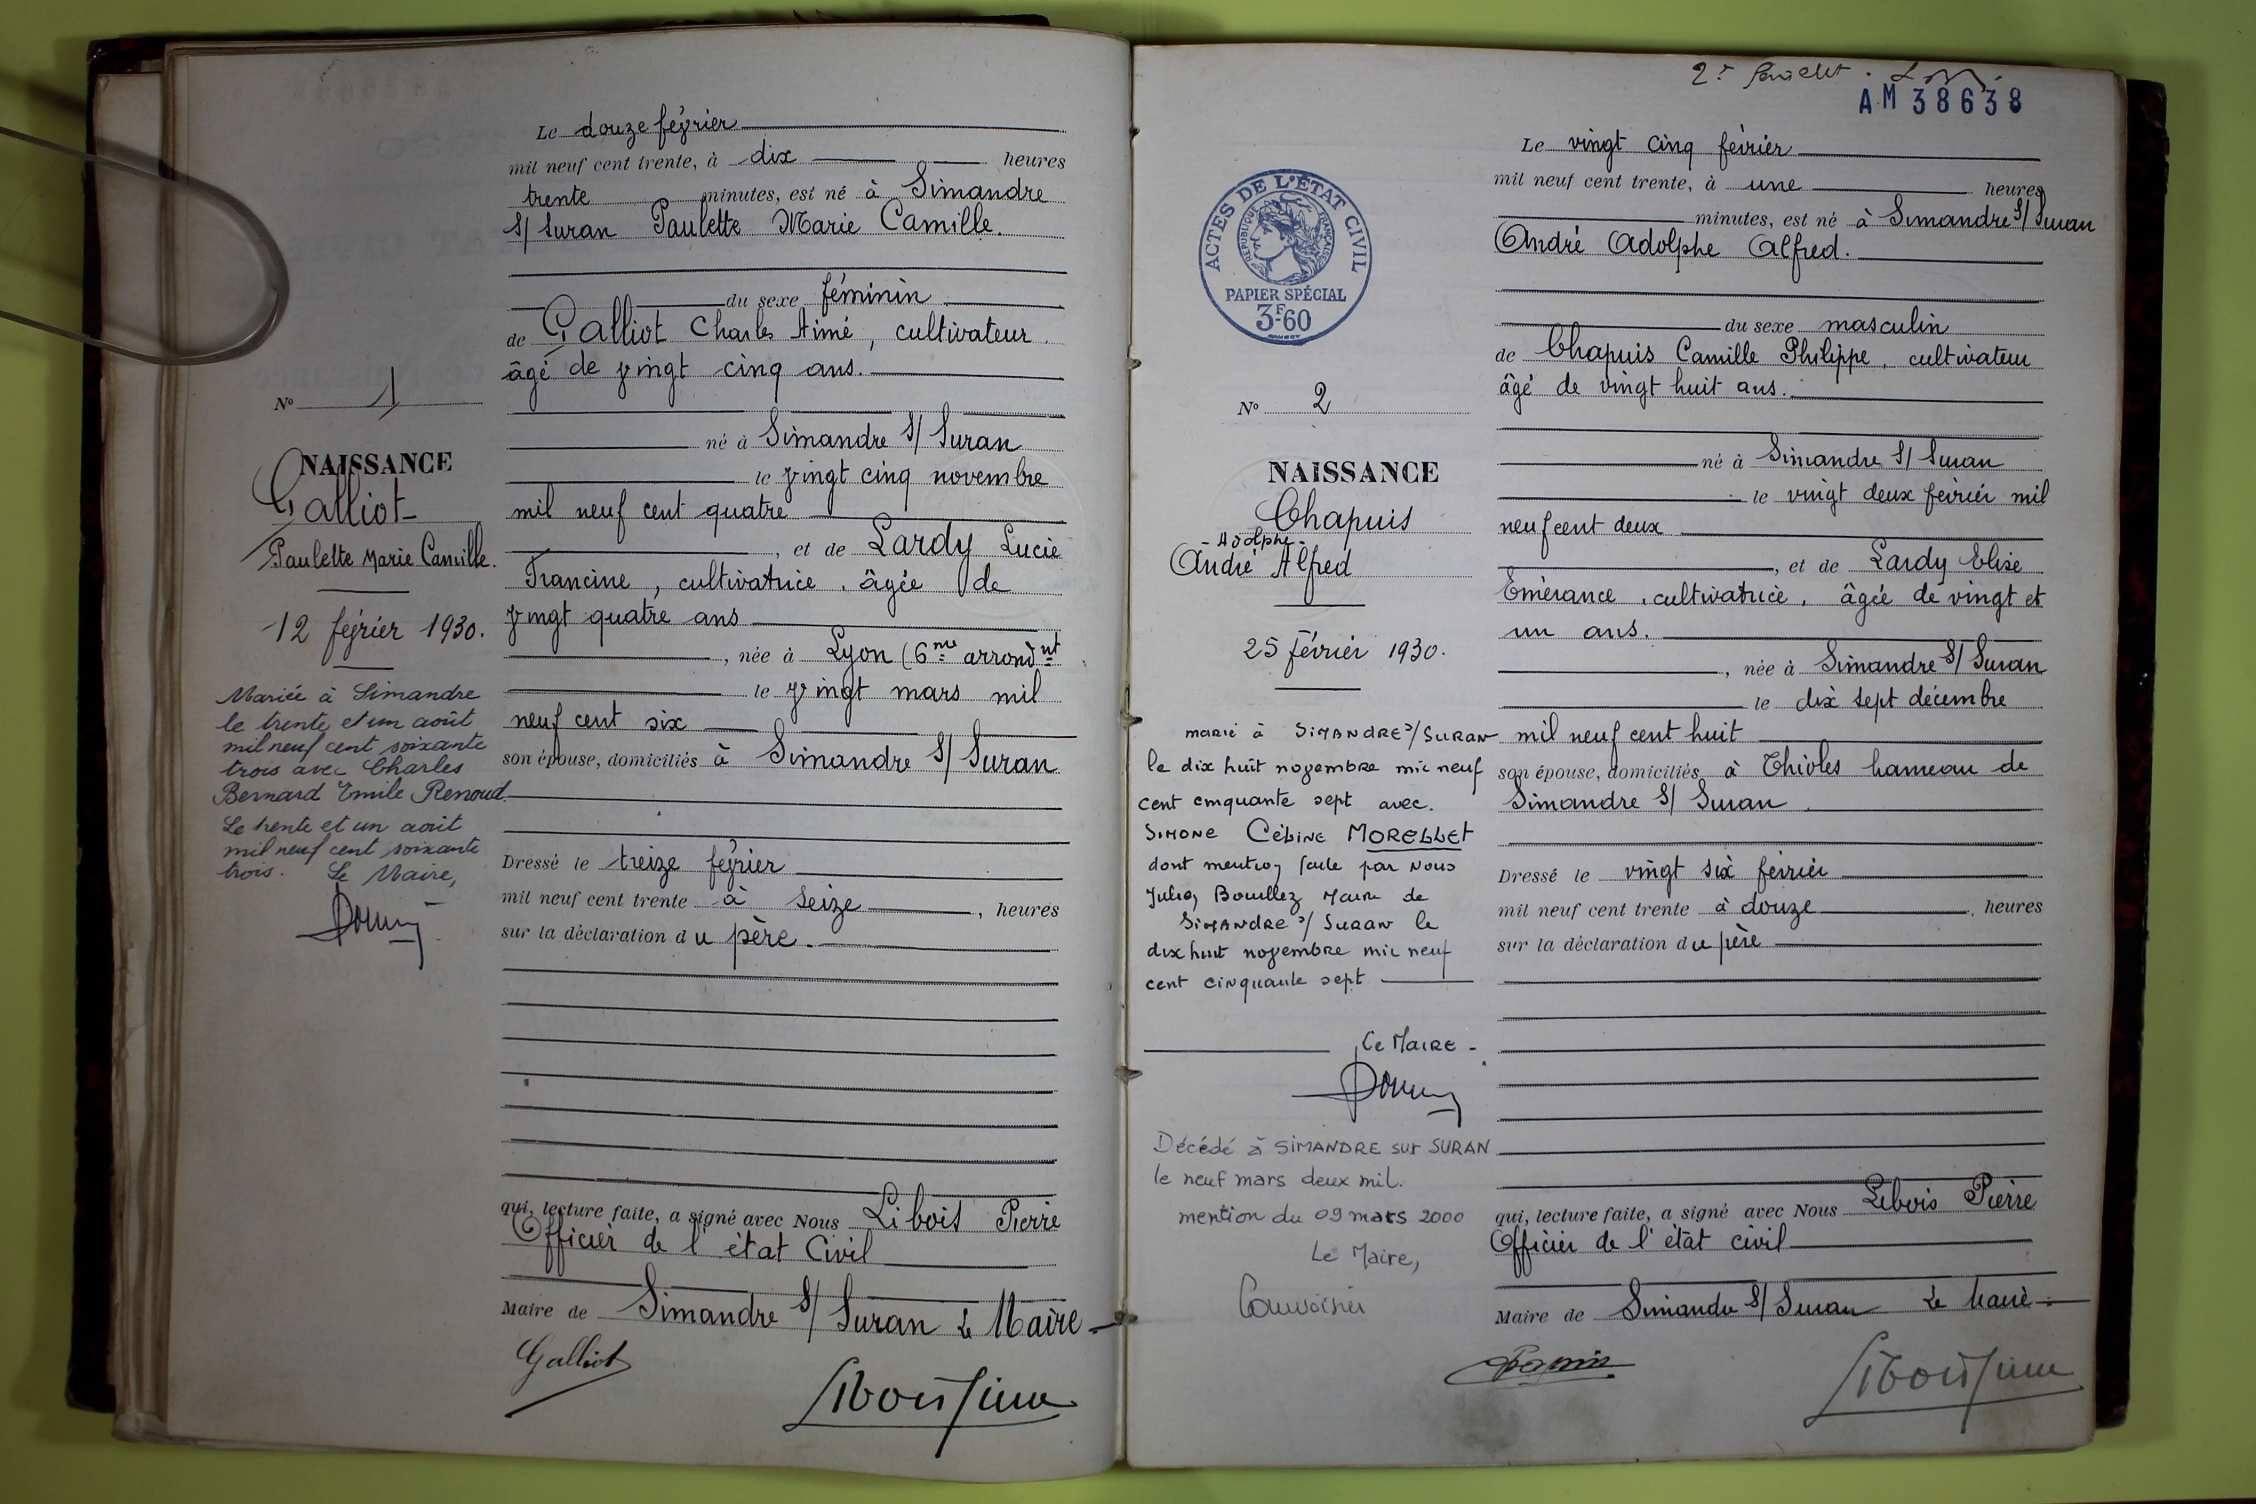 Le douze février
mil neuf cent trente, à dix heures
trente minutes, est né à Simandre
S/ Suran Paulette Marie Camille.
du sexe féminin
de Galliot Charles Aimé, cultivateur
âgé de vingt cinq ans.
né à Simandre S/ Suran
le vingt cinq novembre
mil neuf cent quatre
, et de Lardy Lucie
Francine, cultivatrice, âgée de
vingt quatre ans
, née à Lyon (6me arrondnt
le vingt mars mil
neuf cent six
son épouse, domiciliés à Simandre S/ Suran
Dressé le treize février
mil neuf cent trente à seize, heures
sur la déclaration du père.
qui, lecture faite, a signé avec Nous Libois Pierre
Officier de l'état Civil
Maire de Simandre S/ Suran Le Maire
Galliot
No 1
NAISSANCE
Galliot
Paulette Marie Camille.
12 février 1930.
Mariée à Simandre
le trente et un août
mil neuf cent soixante
trois avec Charles
Bernard Emile Renoud.
Le trente et un août
mil neuf cent soixante
trois. Le Maire,
AM 38638
ACTES DE L'ÉTAT CIVIL
RÉPUBLIQUE FRANÇAISE
PAPIER SPÉCIAL
3F60
No 2
NAISSANCE
Chapuis
- Adolphe -
André Alfred
25 février 1930.
marié à SIMANDRE S/ SURAN
le dix huit novembre mil neuf
cent cinquante sept avec.
SIMONE CÉLINE MORELLET
dont mention faite par Nous
Bouillez Maire de
SIMANDRE S/ SURAN le
dix huit novembre mil neuf
cent cinquante sept
Le MAIRE -
Décédé à SIMANDRE sur SURAN
le neuf mars deux mil.
mention du 09 mars 2000
Le Maire,
Le vingt cinq février
mil neuf cent trente, à une heures
minutes, est né à Simandre S/ Suran
André Adolphe Alfred.
du sexe masculin
de Chapuis Camille Philippe, cultivateur
âgé de vingt huit ans.
né à Simandre S/ Suran
le vingt deux février mil
neuf cent deux
, et de Lardy Elise
Emérance, cultivatrice, âgée de vingt et
un ans.
, née à Simandre S/ Suran
le dix sept décembre
mil neuf cent huit
son épouse, domiciliés à Thioles hameau de
Simandre S/ Suran.
Dressé le vingt six février
mil neuf cent trente à douze, heures
sur la déclaration du père
qui, lecture faite, a signé avec Nous Libois Pierre
Officier de l'état civil
Maire de Simandre S/ Suran Le Maire